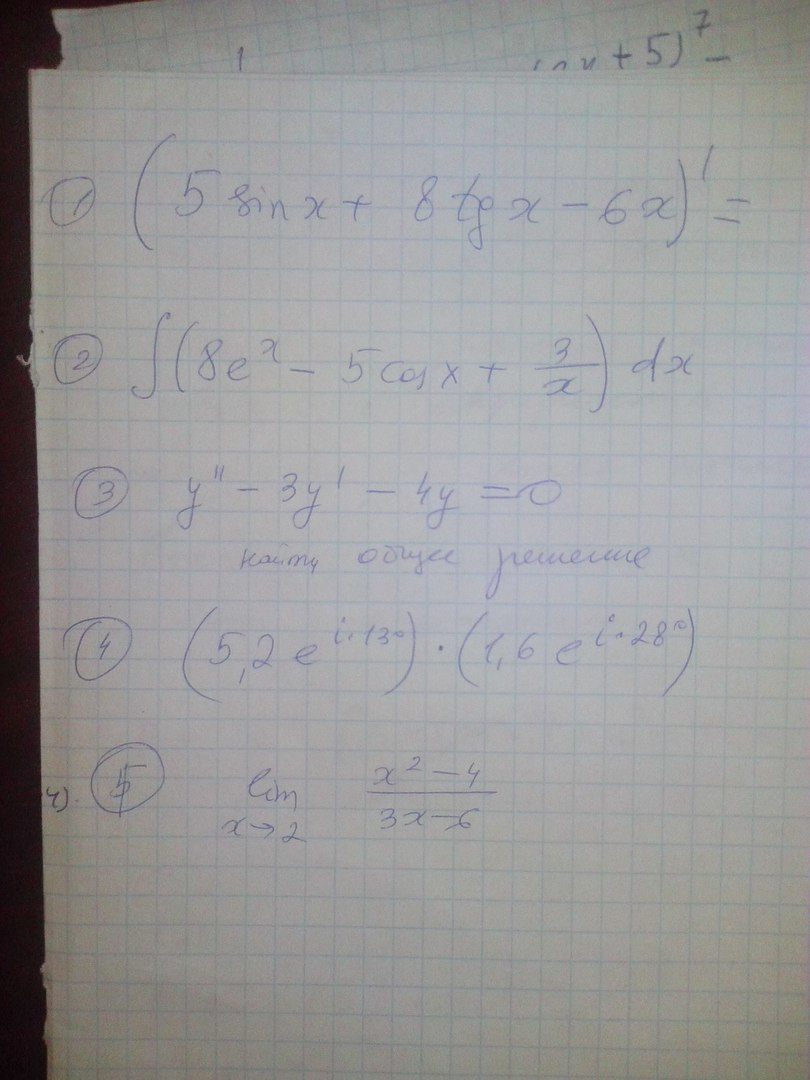 + 5)⁷ –
① (5 sin x + 8 tg x – 6x)' =
② ∫(8eˣ – 5 cos x + 3/x) dx
③ y'' – 3y' – 4y = 0
найти общее решение
④ (5,2 e^{i·13°}) · (1,6 e^{i·28°})
4). ⑤ lim x→2 (x² – 4)/(3x – 6)